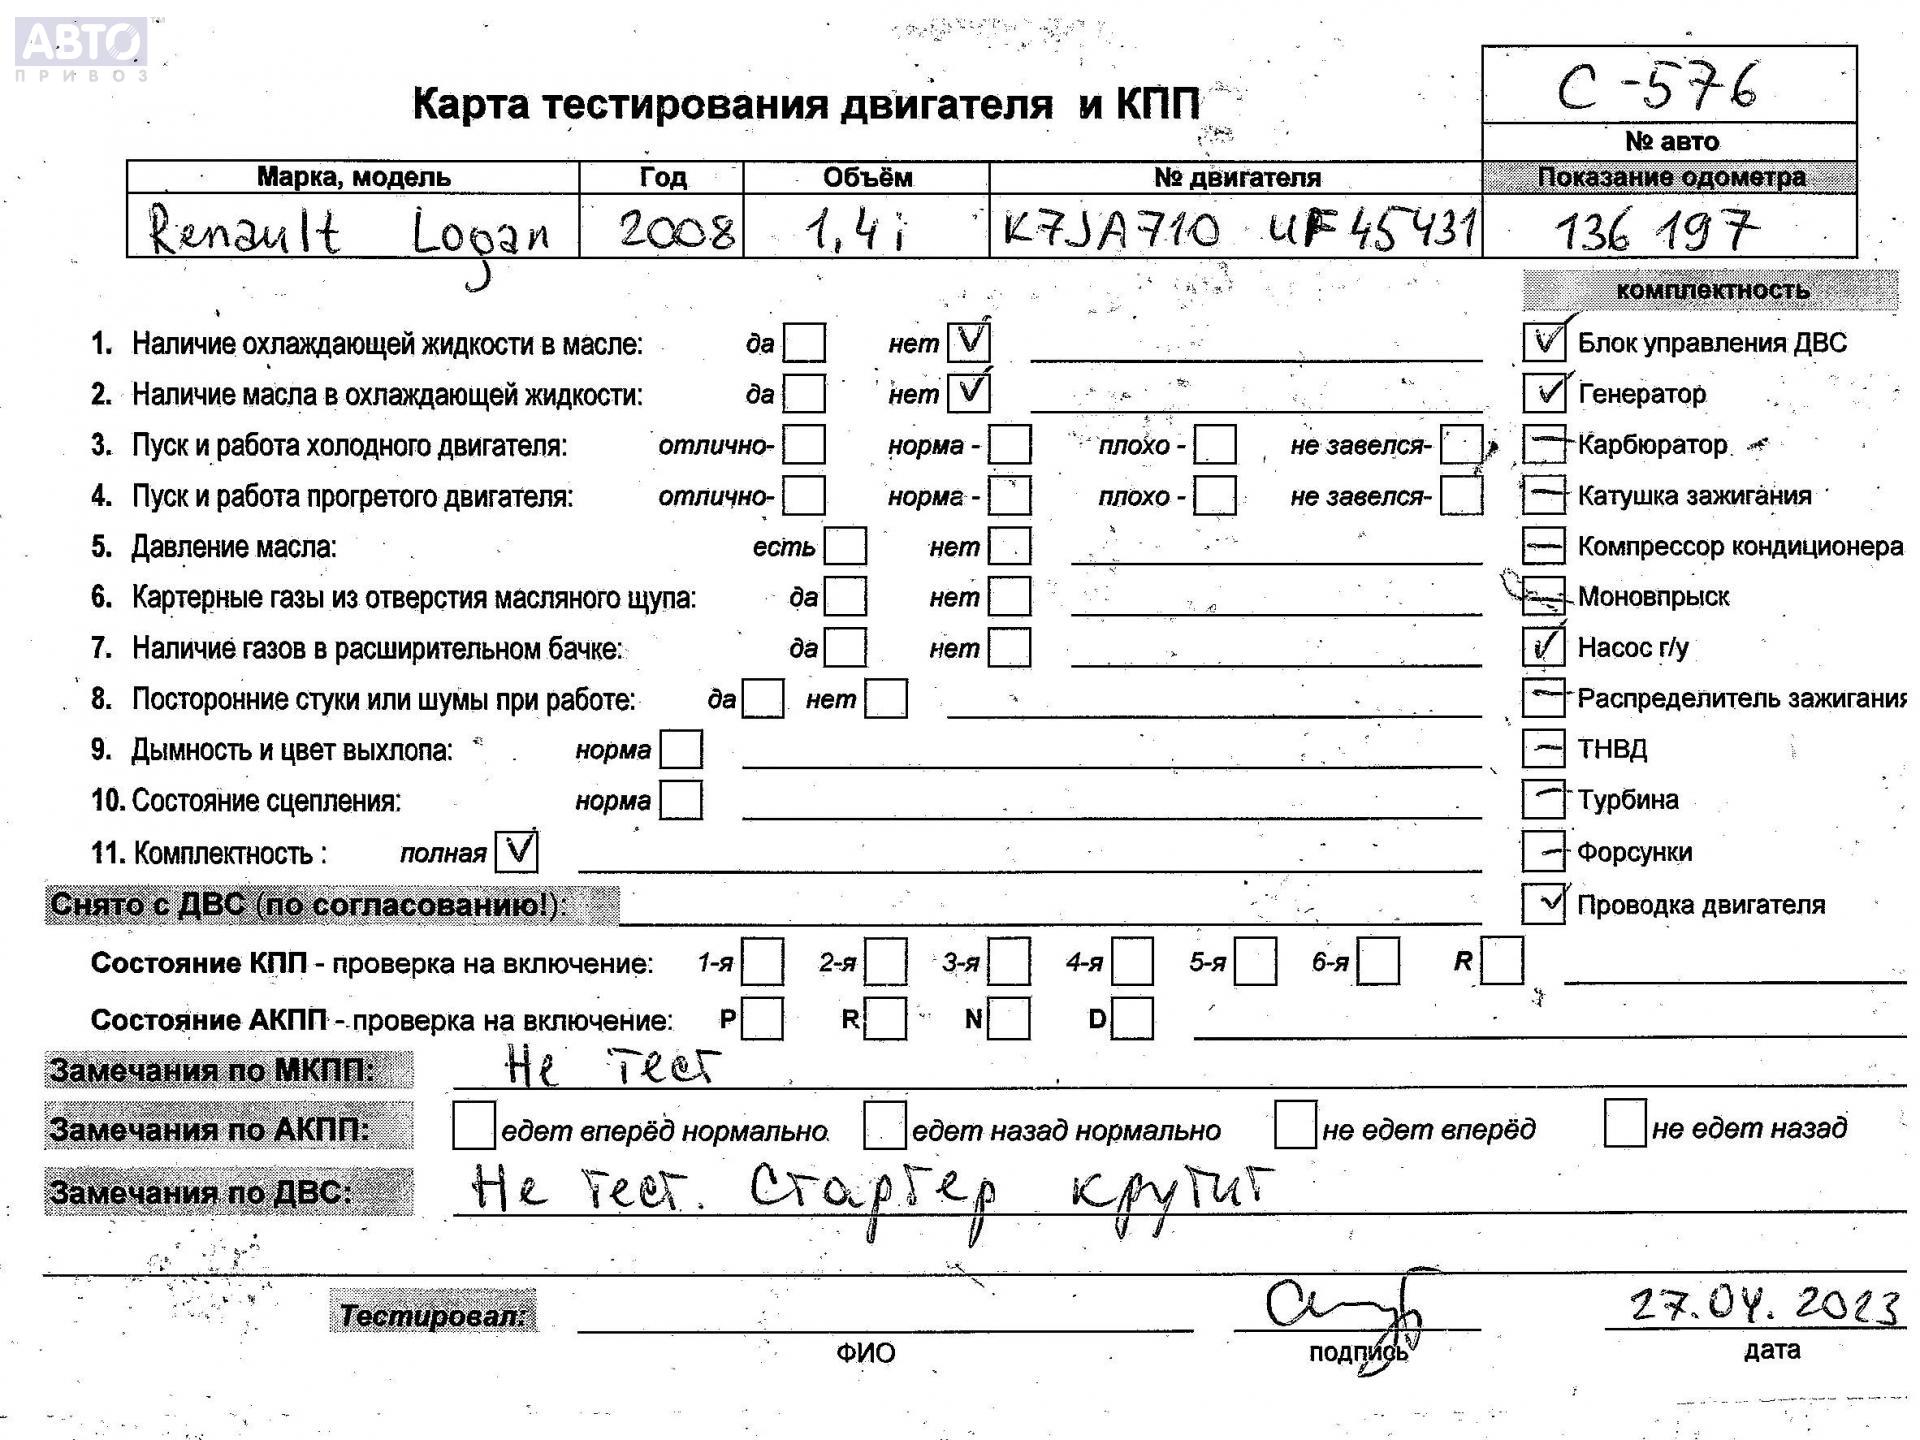 АВТО
ПРИВОЗ
С-576
Карта тестирования двигателя и КПП
№ авто
Марка, модель Год Объём № двигателя Показание одометра
Renault Logan 2008 1,4i K7JA710 UF45431 136 197
комплектность
1. Наличие охлаждающей жидкости в масле: да нет V V Блок управления ДВС
2. Наличие масла в охлаждающей жидкости: да нет V V Генератор
3. Пуск и работа холодного двигателя: отлично- норма - плохо - не завелся- — Карбюратор
4. Пуск и работа прогретого двигателя: отлично- норма - плохо - не завелся- — Катушка зажигания
5. Давление масла: есть нет — Компрессор кондиционера
6. Картерные газы из отверстия масляного щупа: да нет — Моновпрыск
7. Наличие газов в расширительном бачке: да нет V Насос г/у
8. Посторонние стуки или шумы при работе: да нет — Распределитель зажигания
9. Дымность и цвет выхлопа: норма — ТНВД
10. Состояние сцепления: норма — Турбина
11. Комплектность : полная V — Форсунки
Снято с ДВС (по согласованию!): V Проводка двигателя
Состояние КПП - проверка на включение: 1-я 2-я 3-я 4-я 5-я 6-я R
Состояние АКПП - проверка на включение: P R N D
Замечания по МКПП: Не тест
Замечания по АКПП: едет вперёд нормально едет назад нормально не едет вперёд не едет назад
Замечания по ДВС: Не тест. Стартер крутит
Тестировал: 27.04.2023
ФИО подпись дата